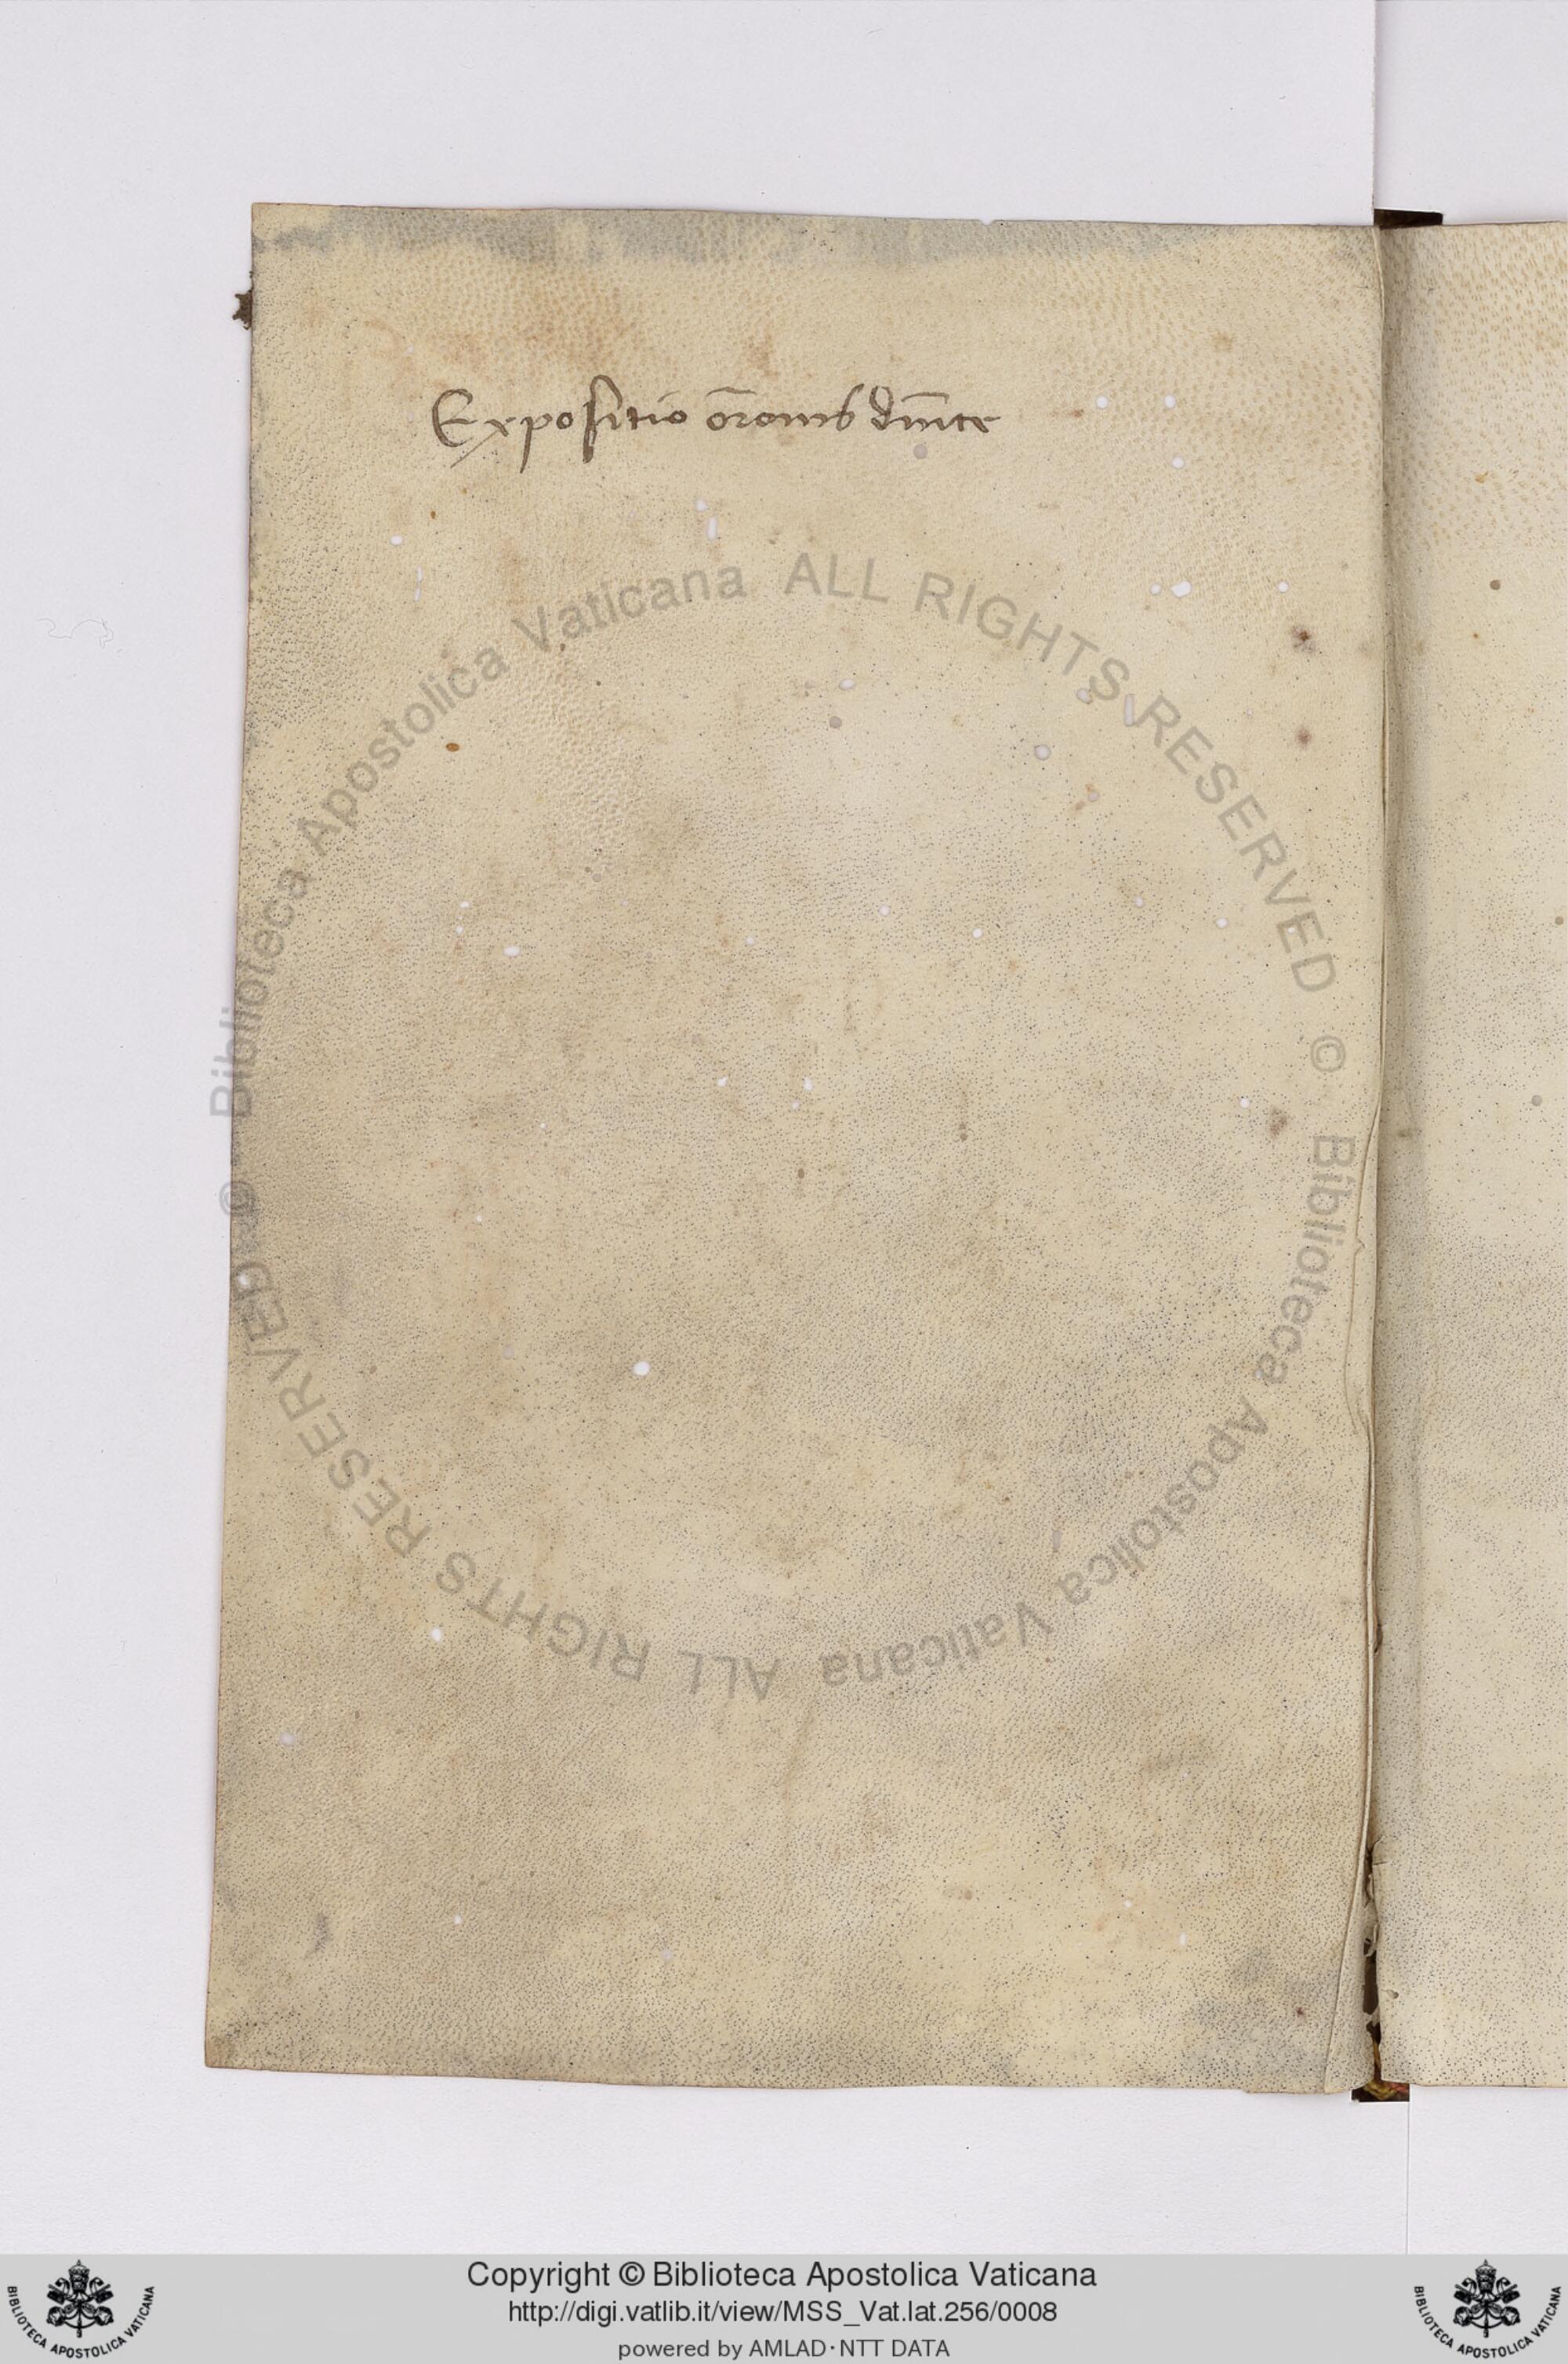 Expositio or̄onis dn̄ice
Biblioteca Apostolica Vaticana ALL RIGHTS RESERVED ©
Biblioteca Apostolica Vaticana ALL RIGHTS RESERVED ©
Copyright © Biblioteca Apostolica Vaticana
http://digi.vatlib.it/view/MSS_Vat.lat.256/0008
powered by AMLAD·NTT DATA
BIBLIOTECA APOSTOLICA VATICANA
BIBLIOTECA APOSTOLICA VATICANA